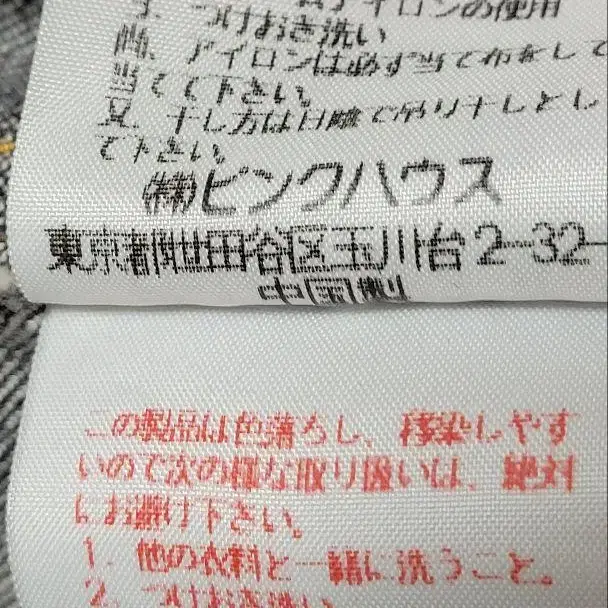 アイロンの使用
つけおき洗い
尚、アイロンは必ず当て布をして
当てて下さい。
又、干し方は日陰で吊り干しとし
て下さい。
㈱ピンクハウス
東京都世田谷区玉川台2-32-
中国製
この製品は色落ちし、移染しやす
いので次の様な取り扱いは、絶対
にお避け下さい。
1. 他の衣料と一緒に洗うこと。
2. つけおき洗い